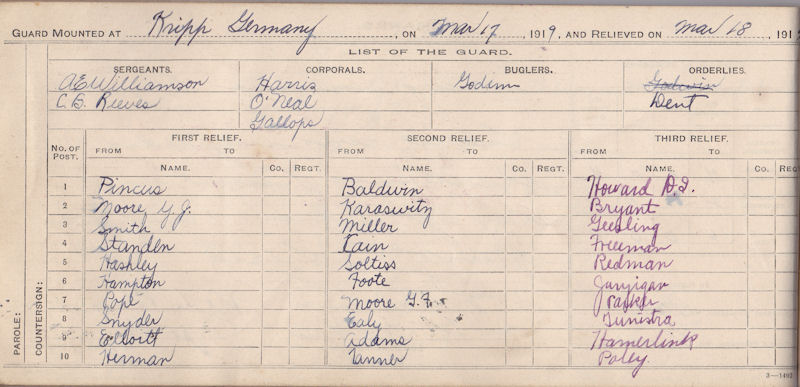 GUARD MOUNTED AT Kripp Germany, ON Mar 17, 1919, AND RELIEVED ON Mar 18, 191
LIST OF THE GUARD.
SERGEANTS. CORPORALS. BUGLERS. ORDERLIES.
A E Williamson Harris Godwin Godwin
C. B. Reeves O'Neal Dent
Gallops
NO. OF POST. FIRST RELIEF. SECOND RELIEF. THIRD RELIEF.
FROM TO FROM TO FROM TO
NAME. CO. REGT. NAME. CO. REGT. NAME. CO. REGT.
1 Pincus Baldwin Howard D.I.
2 Moore Y.J. Karaswitz Bryant
3 Smith Miller Geesling
4 Standen Cain Freeman
5 Hashley Soltiss Redman
6 Hampton Foote
7 Pope Moore G.F. Parker
8 Snyder Ealy Tunistra
9 Elliott Adams Hamerlink
10 Herman Tanner Poley
PAROLE:
COUNTERSIGN:
3—1493